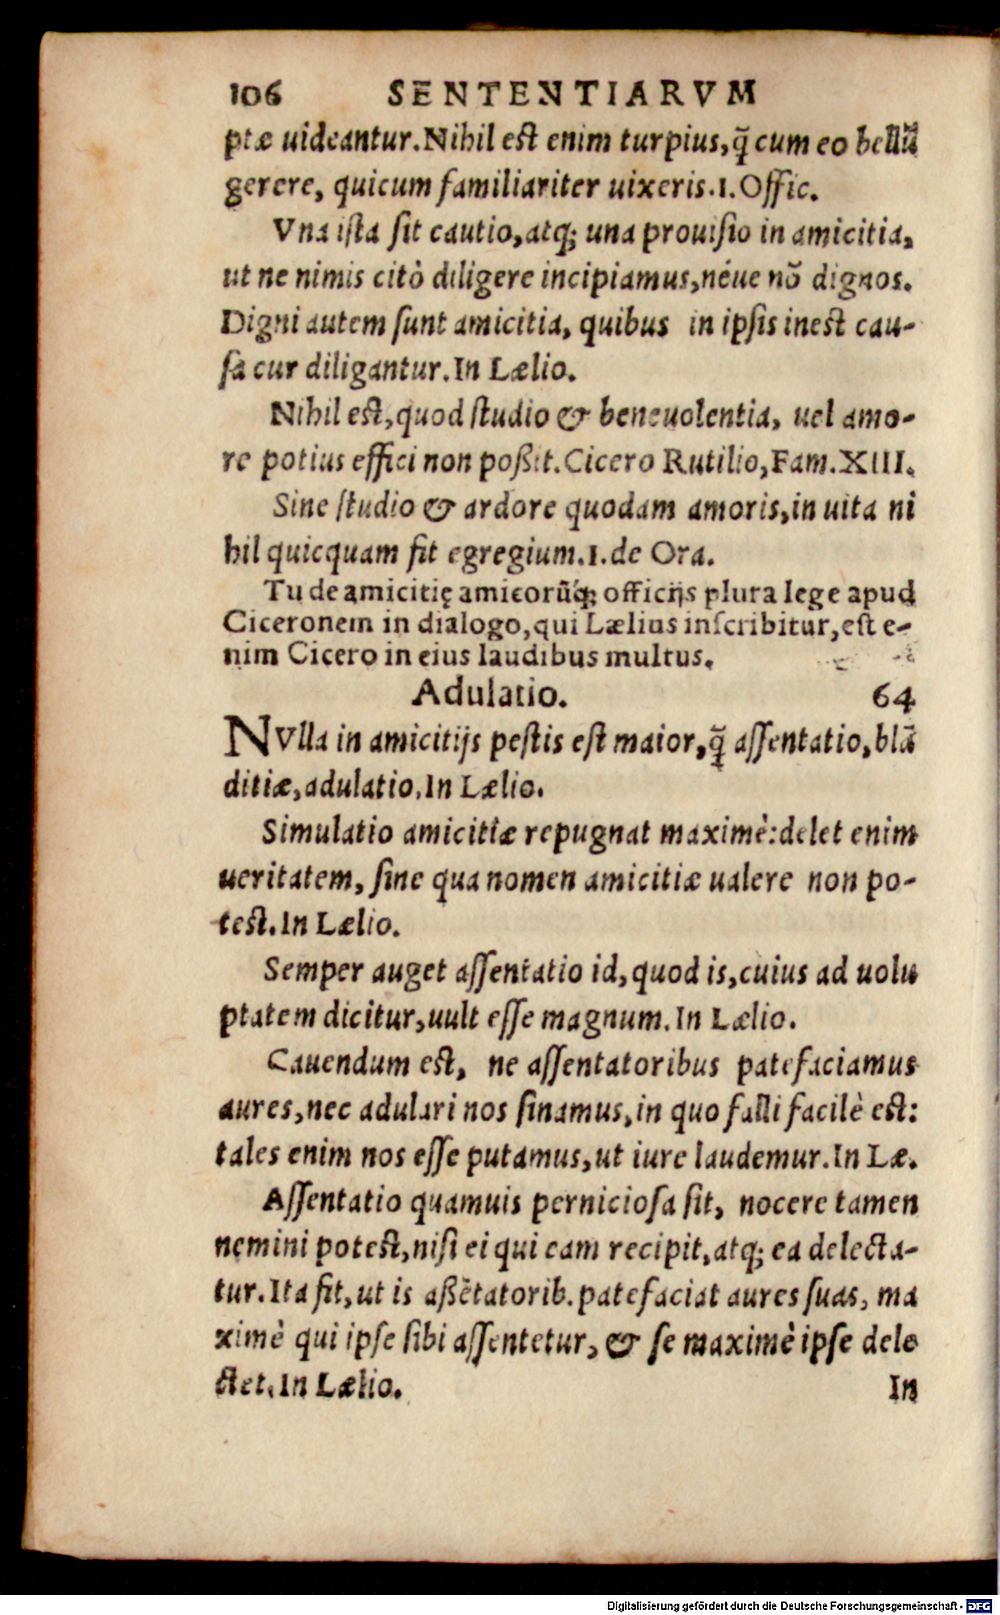 106 SENTENTIARVM
ptæ uideantur. Nihil est enim turpius, q̃ cum eo bellũ
gerere, quicum familiariter uixeris. 1. Offic.
Vna ista sit cautio, atq; una prouisio in amicitia,
ut ne nimis citò diligere incipiamus, néue nõ dignos.
Digni autem sunt amicitia, quibus in ipsis inest cau-
sa cur diligantur. In Lælio.
Nihil est, quod studio & beneuolentia, uel amo-
re potius effici non poßit. Cicero Rutilio, Fam. XIII.
Sine studio & ardore quodam amoris, in uita ni
hil quicquam fit egregium. 1. de Ora.
Tu de amicitię amicorũq́; officijs plura lege apud
Ciceronem in dialogo, qui Lælius inscribitur, est e-
nim Cicero in eius laudibus multus.
Adulatio. 64
NVlla in amicitijs pestis est maior, q̃ assentatio, blã
ditiæ, adulatio. In Lælio.
Simulatio amicitiæ repugnat maximè: delet enim
ueritatem, sine qua nomen amicitiæ ualere non po-
test. In Lælio.
Semper auget assentatio id, quod is, cuius ad uolu
ptatem dicitur, uult esse magnum. In Lælio.
Cauendum est, ne assentatoribus patefaciamus
aures, nec adulari nos sinamus, in quo falli facilè est:
tales enim nos esse putamus, ut iure laudemur. In Læ.
Assentatio quamuis perniciosa sit, nocere tamen
nemini potest, nisi ei qui eam recipit, atq; ea delecta-
tur. Ita fit, ut is aßẽtatorib. patefaciat aures suas, ma
ximè qui ipse sibi assentetur, & se maximè ipse dele
ctet. In Lælio. In
Digitalisierung gefördert durch die Deutsche Forschungsgemeinschaft - DFG